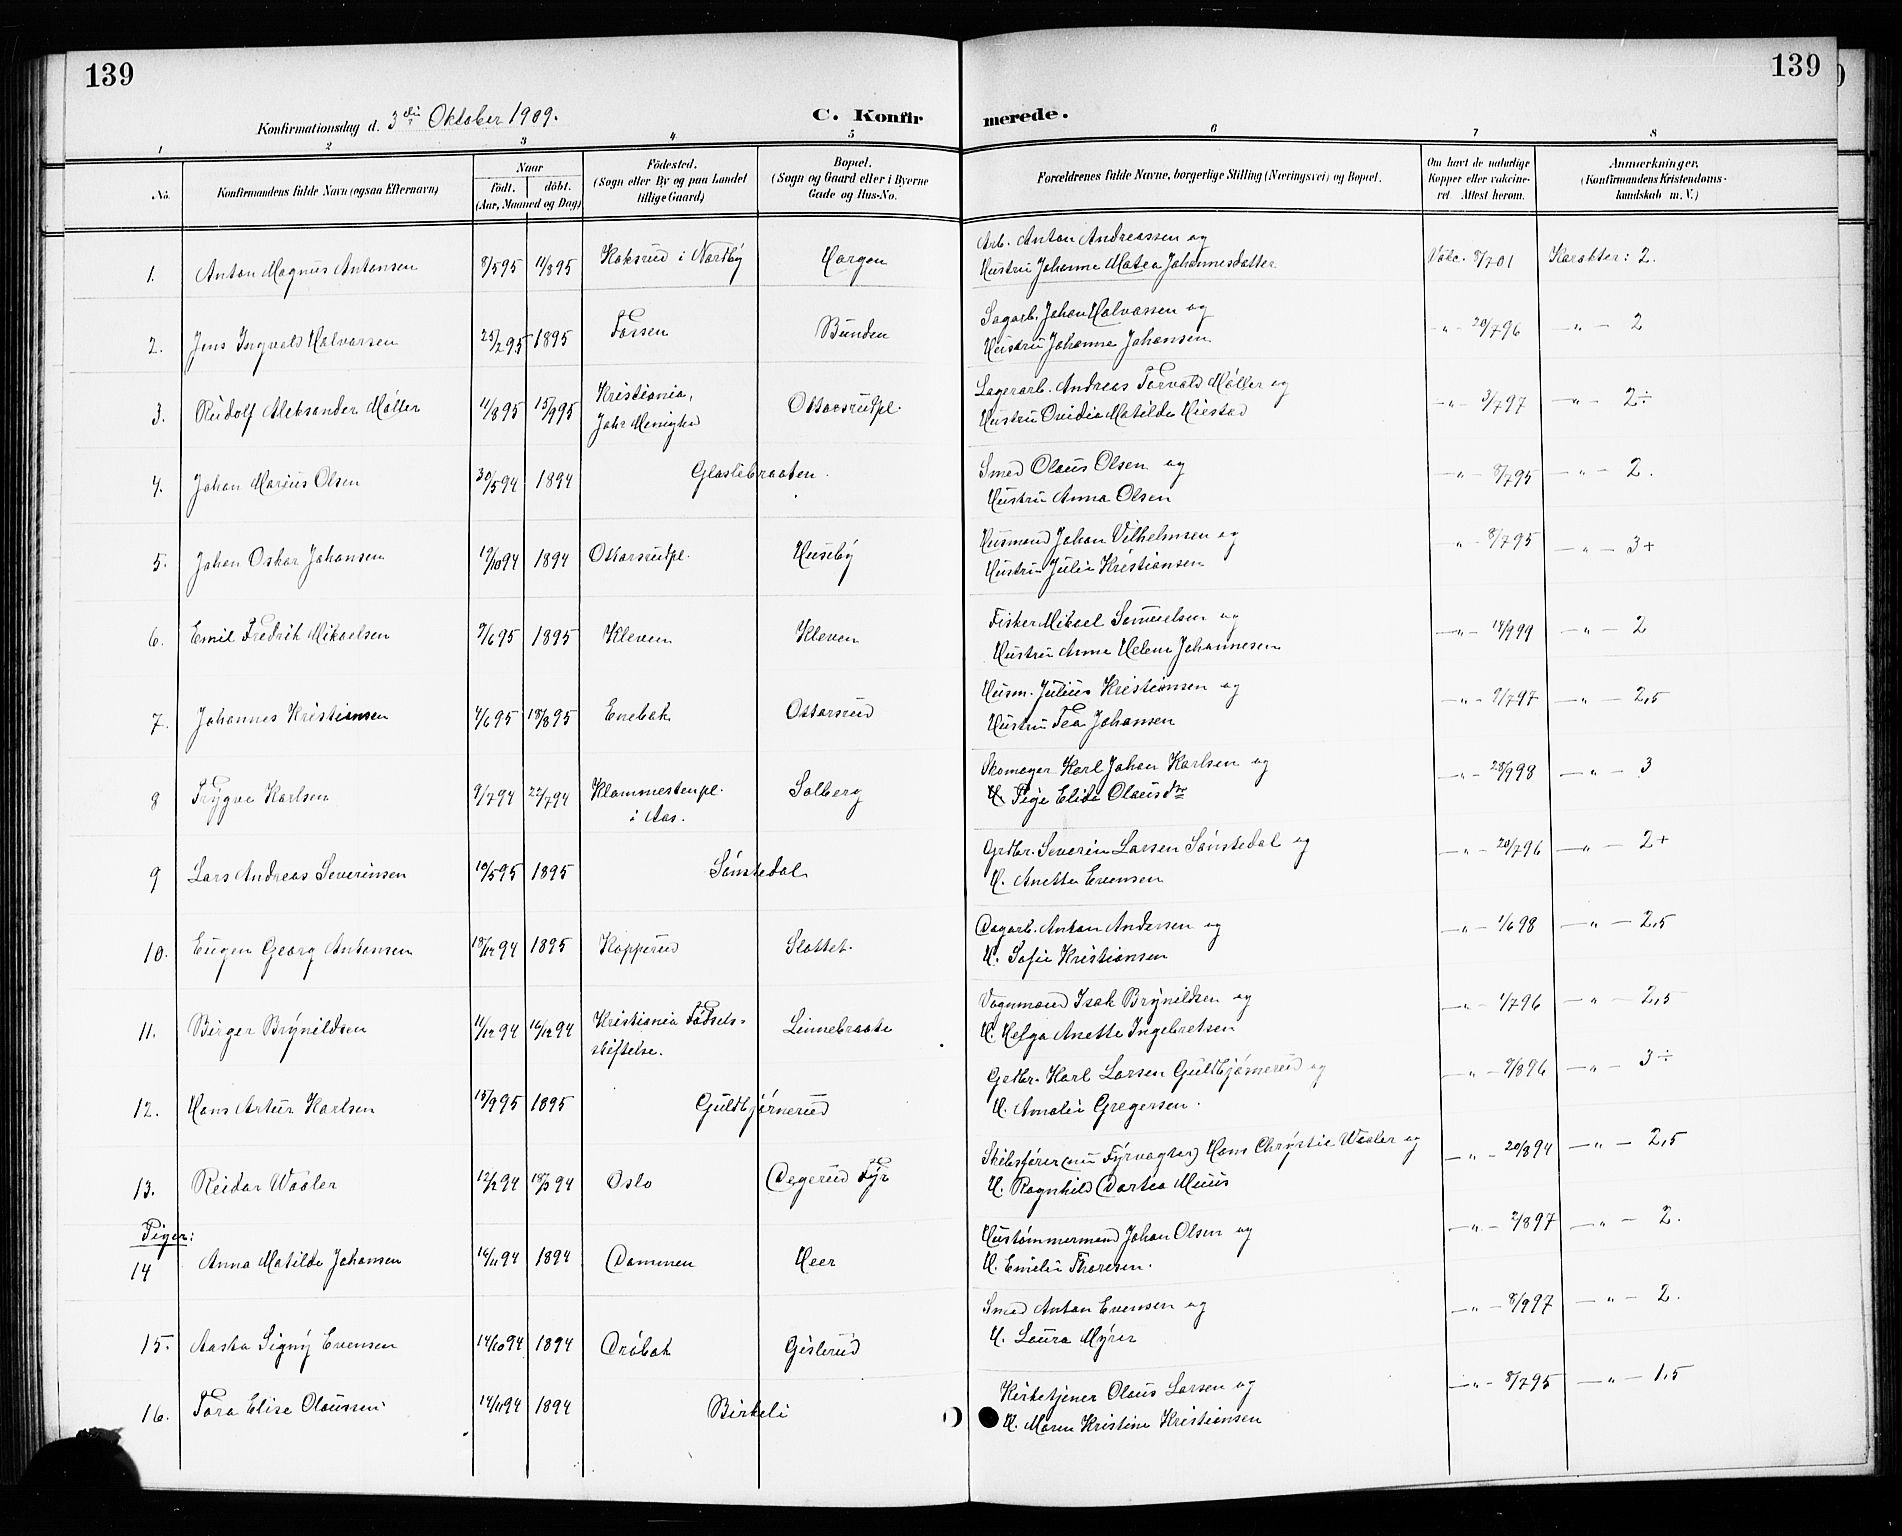 139
139
Konfirmationsdag d. 3die Oktober 1909.
C. Konfirmerede.
1 2 3 4 5 6 7 8
No.
Konfirmandens fulde Navn (ogsaa Efternavn)
Naar
født. døbt.
(Aar, Maaned og Dag)
Fødested.
(Sogn eller By og paa Landet
tillige Gaard)
Bopæl.
(Sogn og Gaard eller i Byerne
Gade og Hus-No.
Forældrenes fulde Navne, borgerlige Stilling (Næringsvei) og Bopæl.
Om havt de naturlige
Kopper eller vakcine-
ret. Attest herom.
Anmærkninger.
(Konfirmandens Kristendoms-
kundskab m. V.)
1. Anton Magnus Antonsen 8/5 95 11/8 95 Koksrud i Nordby Horgen Arb. Anton Andreassen og
Hustru Johanne Matea Johannesdatter Vakc. 8/7 01 Karakter: 2.
2. Jens Ingvald Halvorsen 25/2 95 1895 Fossen Bunden Sagarb. Johan Halvorsen og
Hustru Johanne Johansen —"— 20/7 96 —"— 2
3. Rudolf Aleksander Møller 11/8 95 15/9 95 Kristiania,
Joh's Menighed Ottarsrudpl. Lagerarb. Andreas Torvald Møller og
Hustru Ovidia Matilde Miestad —"— 3/7 97 —"— 2÷
4. Johan Marius Olsen 30/5 94 1894 Glaslibraaten. Smed Olaus Olsen og
Hustru Anna Olsen —"— 8/7 95 —"— 2.
5. Johan Oskar Johansen 19/10 94 1894 Ottarsrudpl. Huseby Husmand Johan Vilhelmsen og
Hustru Julie Kristiansen —"— 8/7 95 —"— 3+
6. Emil Fredrik Mikaelsen 9/6 95 1895 Kleven Kleven Fisker Mikael Samuelsen og
Hustru Anne Helene Johannesen —"— 18/9 99 —"— 2
7. Johannes Kristiansen 4/6 95 18/8 95 Enebak Ottarsrud Husm. Julius Kristiansen og
Hustru Tea Johansen —"— 9/7 97 —"— 2,5
8 Trygve Karlsen 9/7 94 22/7 94 Klommestenpl.
i Aas. Solberg Skomager Karl Johan Karlsen og
Pige Elida Olausdtr —"— 28/9 98 —"— 3
9 Lars Andreas Severinsen 10/5 95 1895 Sønstedal Grdbr. Severin Larsen Sønstedal og
H. Anette Evensen —"— 20/7 96 —"— 2+
10. Eugen Georg Antonsen 18/12 94 1895 Kopperud Slottet. Dagarb. Anton Andersen og
H. Sofie Kristiansen —"— 1/6 98 —"— 2,5
11. Birger Brynildsen 11/12 94 16/12 94 Kristiania Fødsels-
stiftelse. Linnebraate Vognmand Isak Brynildsen og
H. Helga Anette Ingebretsen —"— 1/7 96 —"— 2,5
12. Hans Artur Karlsen 15/9 95 1895 Guldbjørnerud Grdbr. Karl Larsen Guldbjørnerud og
H. Amalie Gregersen. —"— 9/8 96 —"— 3÷
13. Reidar Waaler 12/2 94 18/3 94 Oslo Degerud Fyr Skibsfører (nu Fyrvogter) Hans Chrystie Waaler og
H. Ragnhild Dortea Muus —"— 20/8 94 —"— 2,5
Piger:
14 Anna Matilde Johansen 16/11 94 1894 Dammen Heer Hustømmermand Johan Olsen og
H. Emilie Thoresen. —"— 2/8 97 —"— 2.
15. Aasta Signy Evensen 14/10 94 1894 Drøbak Gislerud Smed Anton Evensen og
H. Laura Myrer —"— 8/9 97 —"— 2.
16. Tora Elise Olaussen 14/11 94 1894 Birkeli Kirketjener Olaus Larsen og
H. Maren Kristine Kristiansen —"— 8/7 95 —"— 1,5